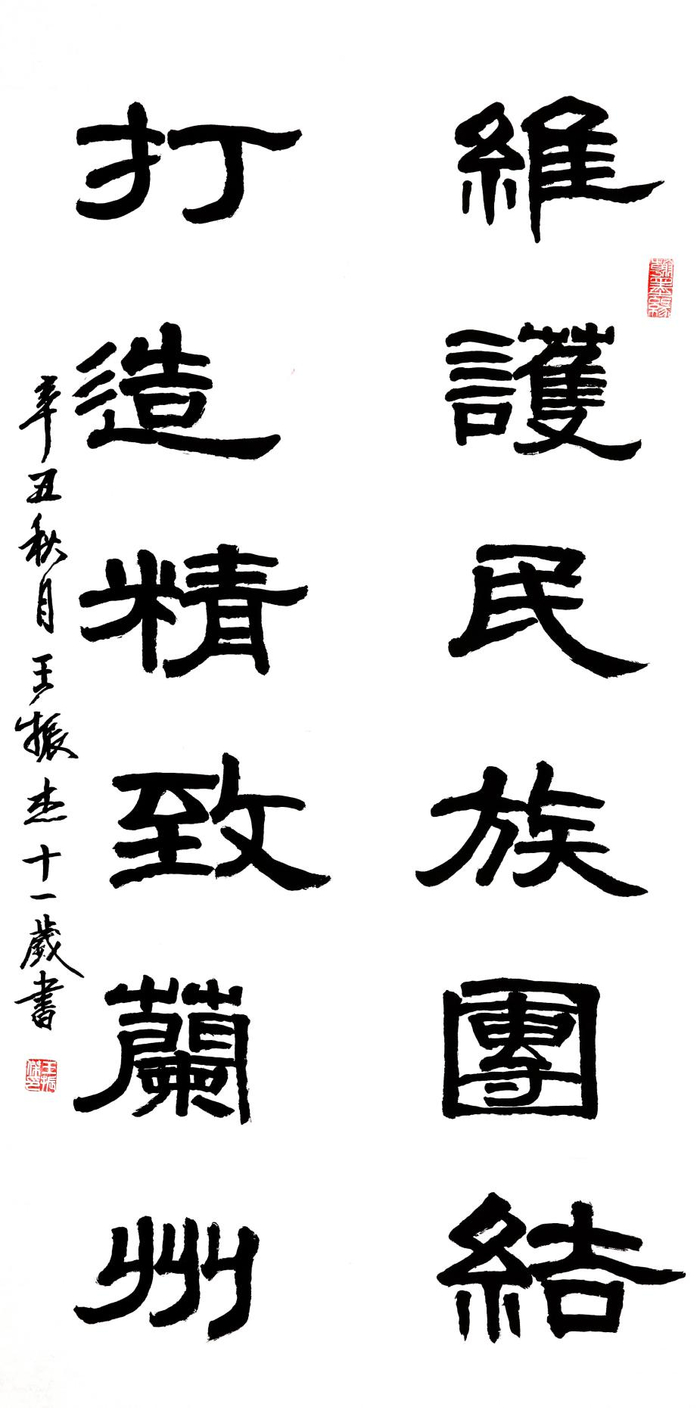 維護民族團結
打造精致蘭州
辛丑秋月王振杰十一歲書
王振杰印